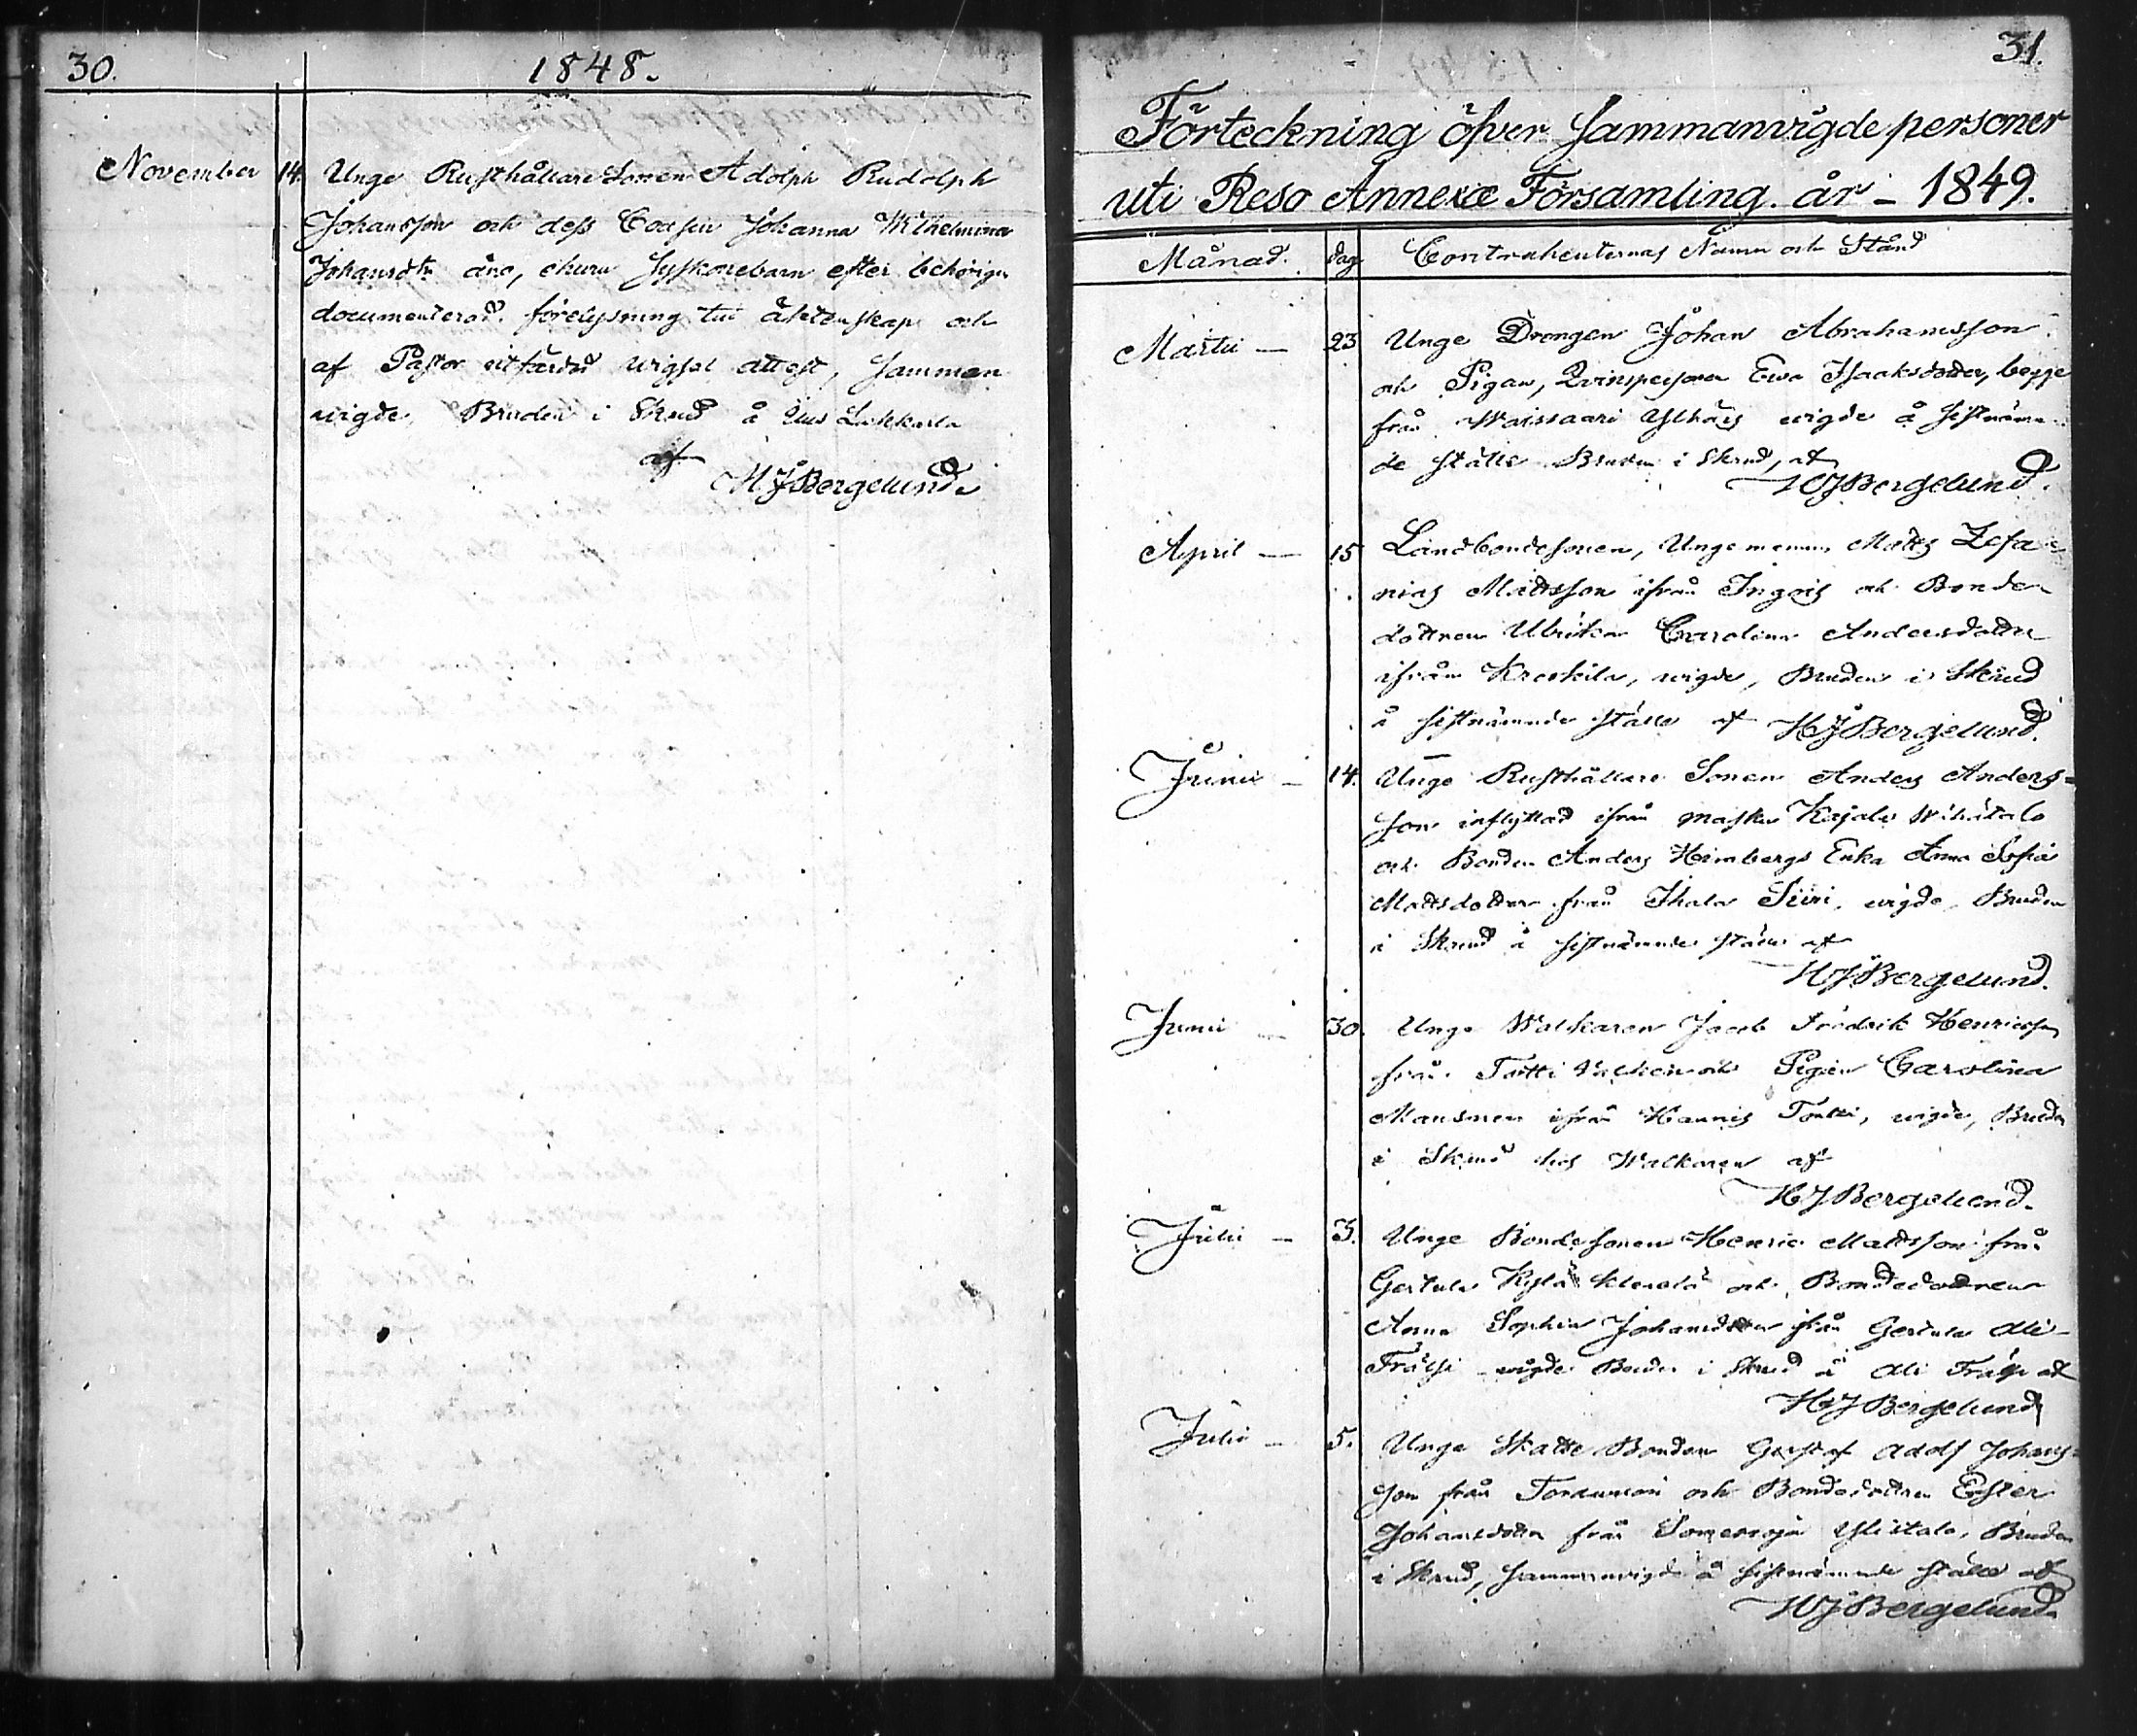 30.
1848.
November 14. Unge Rusthållare Sonen Adolph Rudolph
Johansson och dess Cousin Johanna Wilhelmina
Johansdr äro, ehuru Syskonebarn efter behörigen
documenterad förelysning till äktenskap och
af Pastor utfärdad wigsel attest, Samman
wigde, Bruden i Skrud å Uus Lukkarla
af M J Bergelund
31.
Förteckning öfver Sammanvigde personer
uti Reso Annexe Församling år - 1849.
Månad. dag Contrahenternas Namn och Stånd
Martii — 23 Unge Drengen Johan Abrahamsson
och Pigan, Qvinspersonen Ewa Isaaksdotter, begge
från wigde å sistnämn-
de ställe Bruden i Skrud, af
H J Bergelund.
April — 15 Landbondesonen, Ungemannen Matts Zefa-
nias Mattsson ifrån Ingois och Bonde
dottren Ulrika Carolina Andersdotter
ifrån Kreskila, wigde, Bruden i Skrud
å sistnämnde ställe af H J Bergelund.
Junii — 14. Unge Rusthållare Sonen Anders Anders=
son inflyttad ifrån Masku Kajala
och Bonden Anders Heimbergs Enka Anna Sofia
Mattsdotter från Ihala Piiri, wigde, Bruden
i Skrud å sistnämnde ställe af
H J Bergelund.
Junii — 30. Unge Walkaren Jacob Fredrik Henricsson
från Tortti och Pigan Carolina
ifrån Hannis Tortti, wigde, Bruden
i Skrud hos Walkaren af
H J Bergelund.
Julii — 3. Unge Bondesonen Henric Mattsson från
Gertula och Bondedottren
Anna Sophia Johansdotter från Gertula Ali-
Frälsi wigde Bruden i Skrud å Ali Frälsi af
H J Bergelund
Julii — 5. Unge Skatte Bonden Gustaf Adolf Johans=
son från och Bondedottren Ester
Johansdotter från Somersoja Ylistalo, Bruden
i Skrud, Sammanvigde å sistnämnde ställe af
H J Bergelund